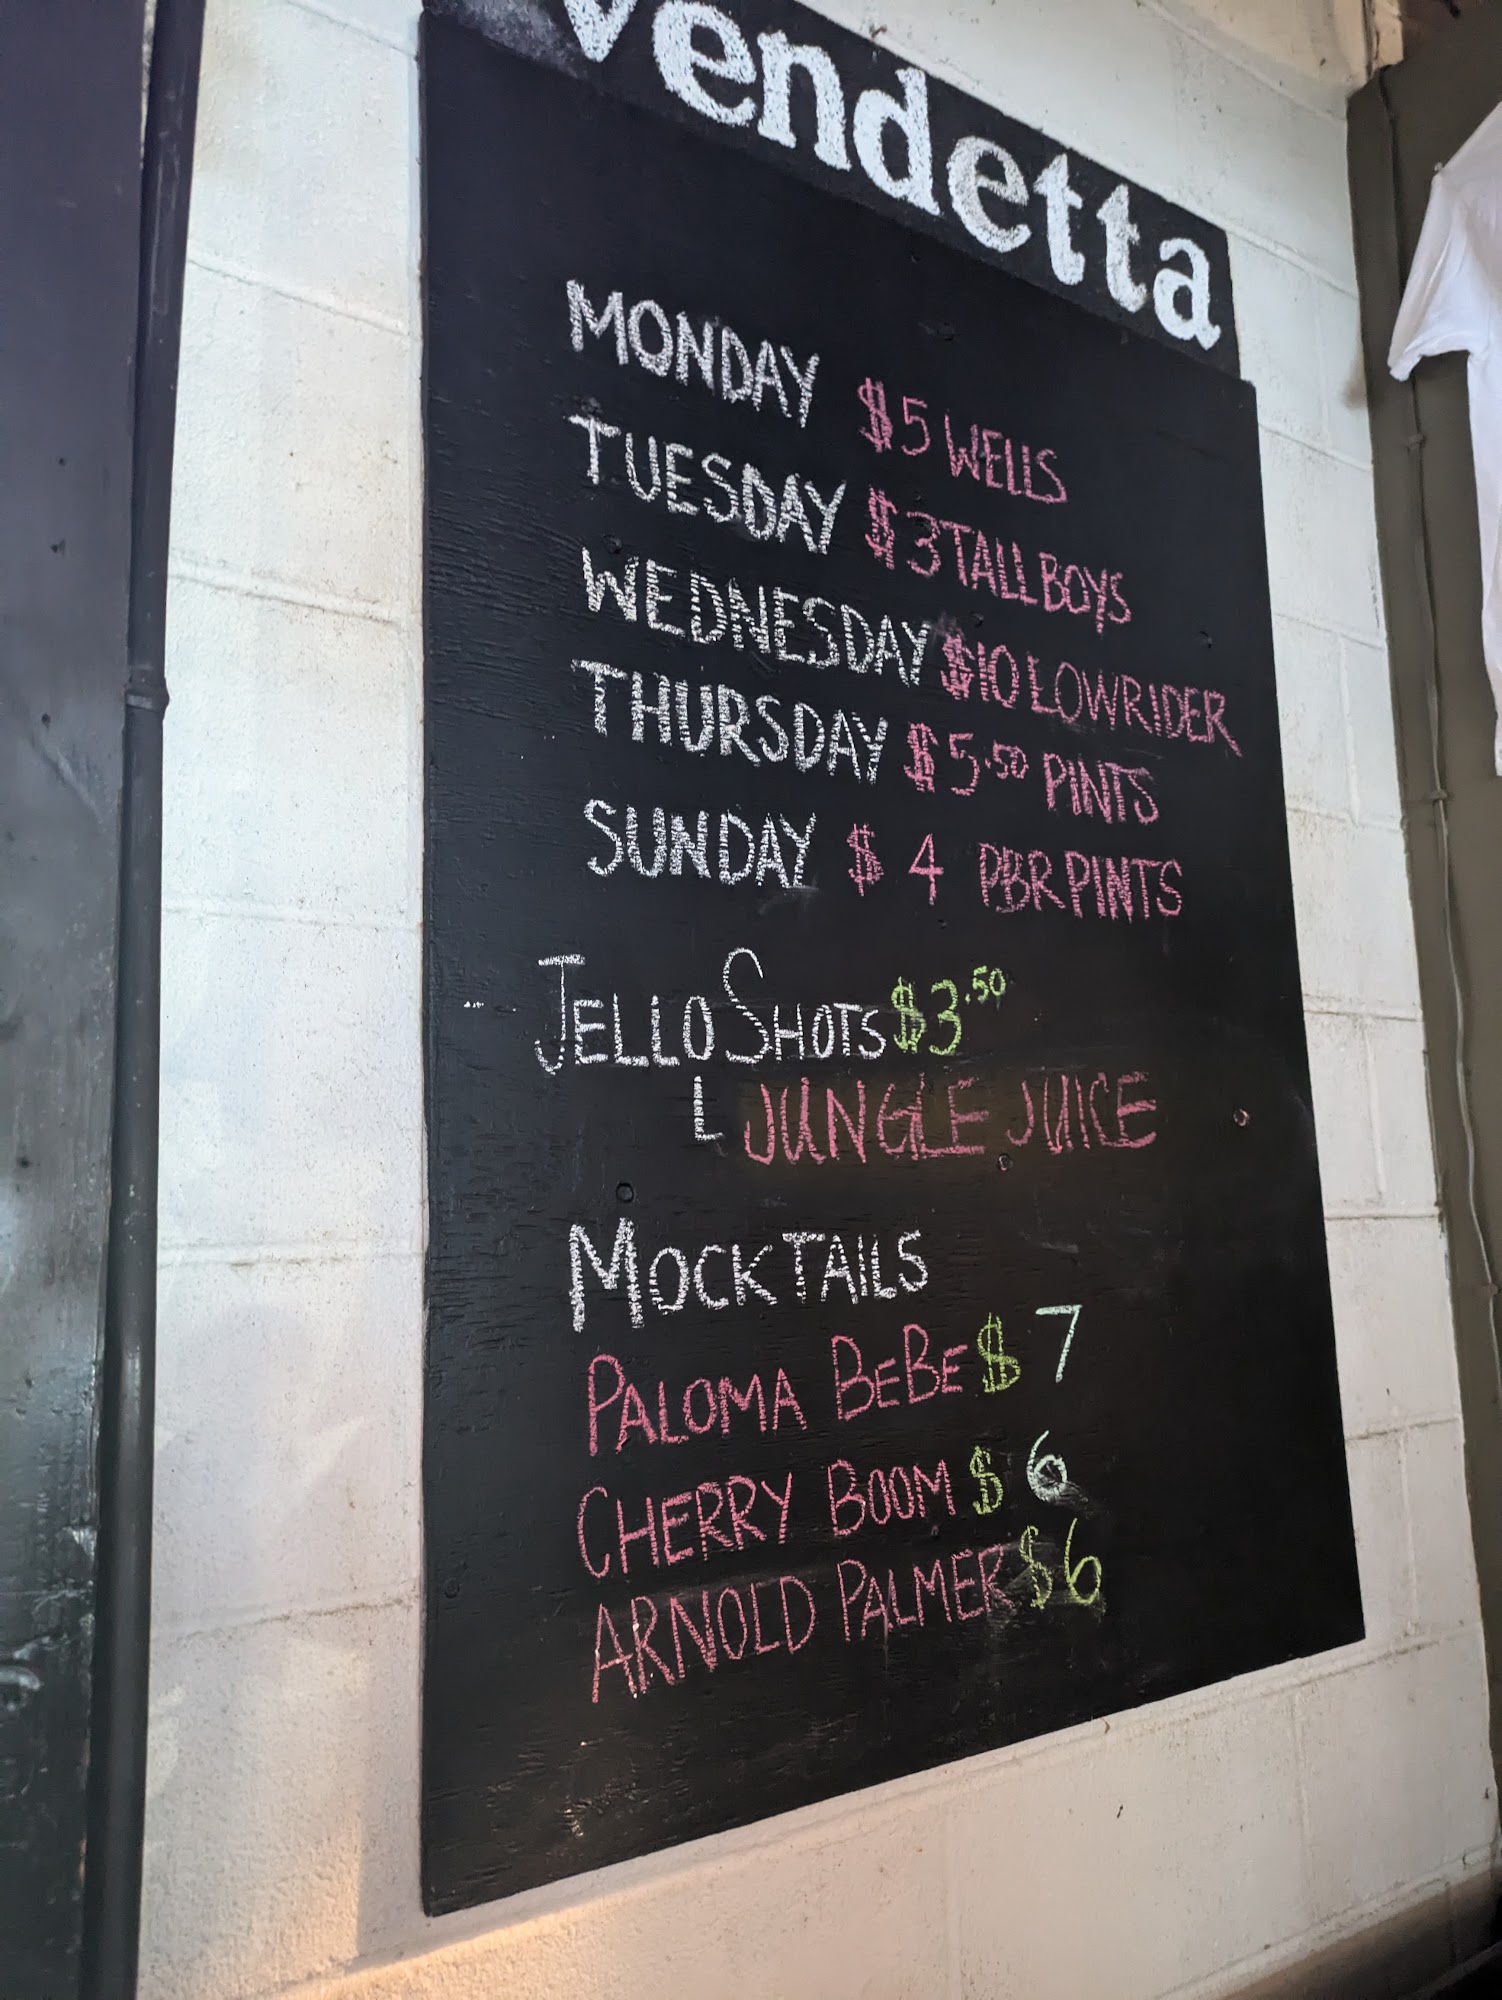 Vendetta
MONDAY $5 WELLS
TUESDAY $3 TALL BOYS
WEDNESDAY $10 LOWRIDER
THURSDAY $5.50 PINTS
SUNDAY $4 PBR PINTS
JELLO SHOTS $3.50
L JUNGLE JUICE
MOCKTAILS
PALOMA BEBE $7
CHERRY BOOM $6
ARNOLD PALMER $6